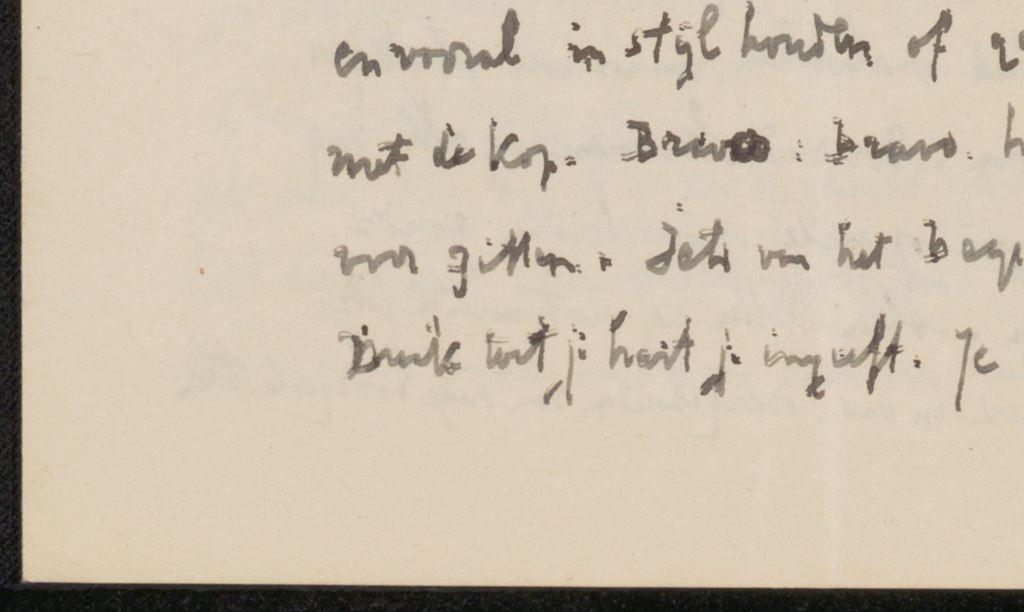 en vooral in stijl houden of
met de kop. Bravo: bravo.
voor zitten. van het
Druk wat je hart je ingeeft. Je